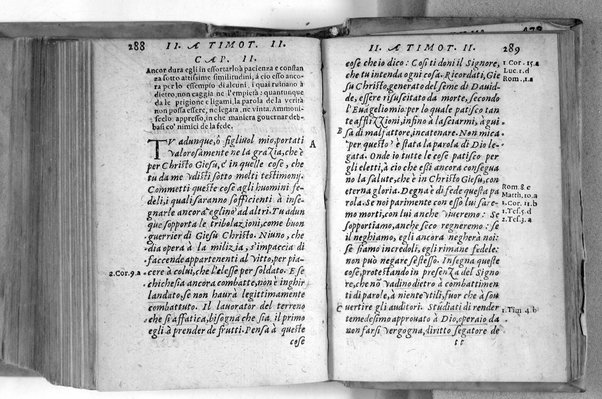 288 II. A TIMOT. II.
CAP. II.
Ancor dura egli in essortarlo à pacienza e constan
za sotto attissime similitudini, à ciò esso anco-
ra per lo essempio di alcuni, i quai ruinano à
dietro, non caggia ne l'empietà: quantunque
da le prigione e ligami, la parola de la verità
non possa essere, ne legara, ne vinta. Ammoni-
scelo appresso, in che maniera governar deb-
basi co' nimici de la fede.
TV adunque, ò figliuol mio, portati
valorosamente ne la grazia, che è
per Christo Giesu, e' in quelle cose, che
tu da me udisti sotto molti testimonj.
Commetti queste cose agli huomini fe-
deli, i quali saranno sofficienti à inse-
gnarle ancora eglino ad altri. Tu adun
que sopporta le tribolazioni, come buon
guerrier di Giesu Christo. Niuno, che
dia opera à la milizia, s'impaccia di
faccende appartenenti al vitto, per pia-
cere à colui, che l'elesse per soldato. E se
chi che sia ancora combatte, non è inghir
landato, se non haurà legittimamente
combattuto. Il lavorator del terreno
che si affatica, bisogna che sia il primo
egli à prender de frutti. Pensa à queste
cose
A
2. Cor. 9. a
II. A TIMOT. II. 289
cose che io dico: Cosi ti doni il Signore,
che tu intenda ogni cosa. Ricordati, Gie
su Christo, generato del seme di Dauid-
de, essere risuscitato da morte, secondo
l'Euangeliomio: per lo quale patisco tan
te afflizzioni, infino à lasciarmi, à gui
sa di malfattore, incatenare. Non mica
per questo è è stata la parola di Dio le-
gata. Onde io tutte le cose patisco per
gli eletti, à ciò che essi ancora conseguа
no la salute, che è in Christo Giesu, con
eterna gloria. Degna è di fede questa pa
rola: Se noi parimente con esso lui sare-
mo morti, con lui anche viueremo: Se
sopportiamo, anche seco regneremo: se
il neghiamo, egli ancora negherà noi:
se siamo increduli, egli rimane fedele:
non può negare se stesso. Insegna queste
cose, protestando in presenza del Signo
re, che nò vadino dietro à combattimen
ti di parole, à niente vtili, fuor che à sou
vertire gli auditori. Studiati di render
te medesimo approuato à Dio, operaio da
non farsi vergogna, diritto segatore de
tt
B
C
1 Cor. 15. a
Luc. 1. d
Rom. 1. a
Rom. 8. e
Matth. 10. a
1. Cor. 11. b
1. Tes. 5. d
2. Tes. 3. a
1. Tim. 4. b